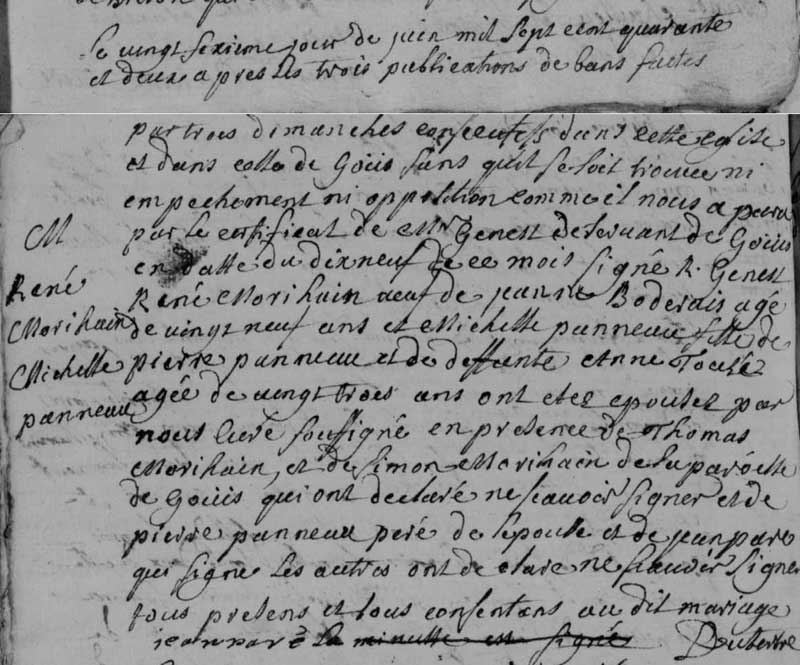 Le vingt sexieme jour de juin mil sept cent quarante
et deux apres les trois publications de bans faites
par trois dimanches consecutifs dans cette eglise
et dans celle de Goüis sans quil se soit trouvé ni
empechement ni opposition comme il nous a paru
par le certificat de Mr Genest deservant de Goüis
en datte du dixneuf de ce mois signé R. Genest
René Morihain veuf de jeanne Boderais agé
de vingt neuf ans et Michelle panneau fille de
pierre panneau et de deffunte Anne
agée de vingt trois ans ont etez epousez par
nous Curé soussigné en presence de Thomas
Morihain, et de Simon Morihain de la paroisse
de Goüis qui ont declaré ne scauoir signer et de
pierre panneau peré de lepouse et de jean paré
qui signe les autres ont declare ne scauoir signer
tous presens et tous consentans au dit mariage
jean paré la minutte est signé
M
René
Morihain
Michelle
panneau